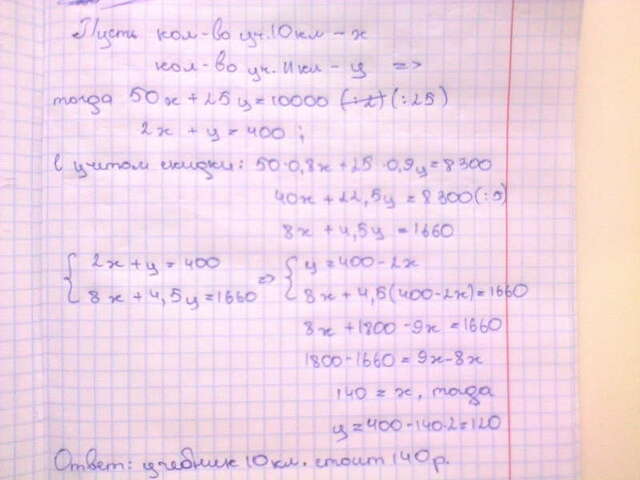 Пусть кол-во уч. 10 кл - x
кол-во уч. 11 кл - y =>
тогда 50x + 25y = 10000 (:2) (:25)
2x + y = 400 ;
С учётом скидки: 50·0,8x + 25·0,9y = 8300
40x + 22,5y = 8300 (:5)
8x + 4,5y = 1660
{ 2x + y = 400 => { y = 400 - 2x
8x + 4,5y = 1660 8x + 4,5(400 - 2x) = 1660
8x + 1800 - 9x = 1660
1800 - 1660 = 9x - 8x
140 = x, тогда
y = 400 - 140·2 = 120
Ответ: учебник 10 кл. стоит 140 р.